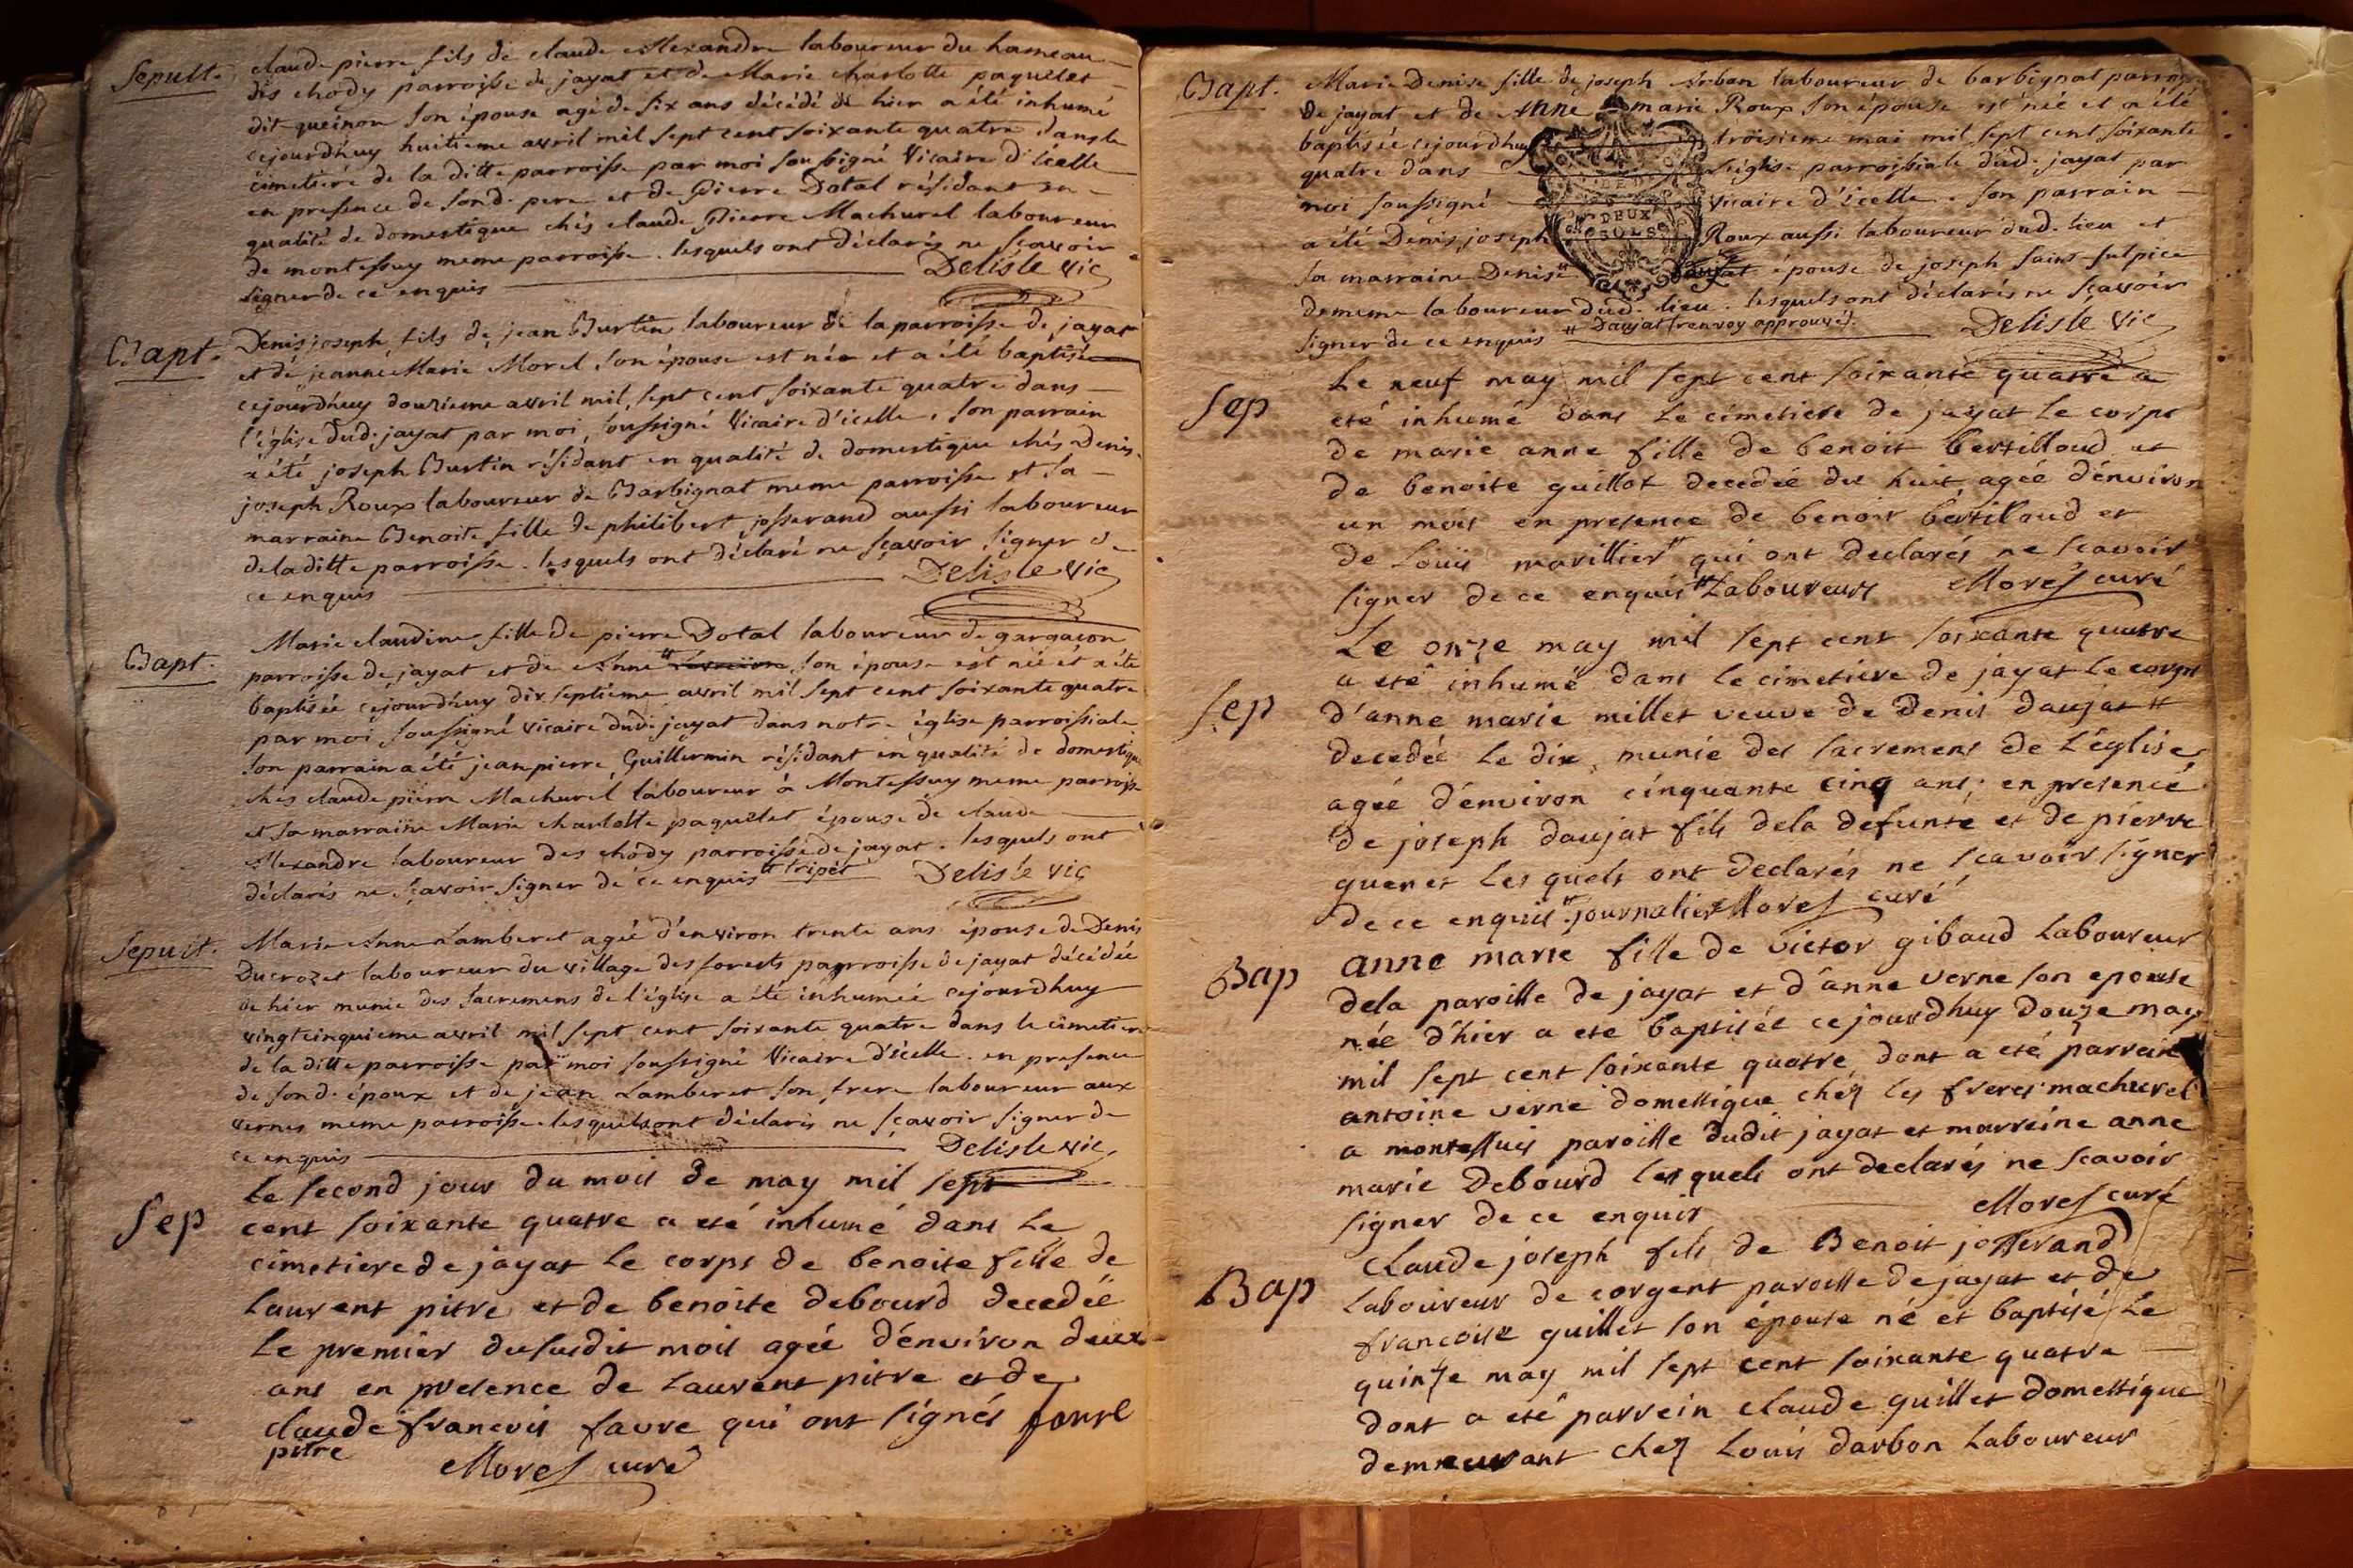 Sepult. claude pierre fils de claude Alexandre laboureur du hameau
des chody parroisse de jayat et de Marie charlotte paquelet
dit queinon son épouse agé de six ans décédé de hier a été inhumé
cejourd'huy huitieme avril mil sept cent soixante quatre dans le
cimetiére de la ditte parroisse par moi soussigné Vicaire d'icelle
en presence de sond. pere et de Pierre Dotal résidant en
qualité de domestique chés claude Pierre Machurel laboureur
de montessuy meme parroisse. lesquels ont déclarés ne sçavoir
signer de ce enquis Delisle vic
Bapt. Denis joseph fils de jean Burtin laboureur de la parroisse de jayat
et de jeanne Marie Morel son épouse est née et a été baptisé
cejourd'huy douzieme avril mil sept cent soixante quatre dans
l'église dud. jayat par moi soussigné Vicaire d'icelle. son parrain
a été joseph Burtin résidant en qualité de domestique chés Denis
joseph Roux laboureur de Barbignat meme parroisse et sa
marraine Benoite fille de philibert josserand aussi laboureur
de la ditte parroisse. lesquels ont déclaré ne sçavoir signer de
ce enquis Delisle vic
Bapt. Marie claudine fille de pierre Dotal laboureur de gargaçon
parroisse de jayat et de Anne son épouse est née et a été
baptisée cejourd'huy dix septieme avril mil sept cent soixante quatre
par moi soussigné vicaire dud. jayat dans notre église parroissiale
son parrain a été jean pierre Guillermin résidant en qualité de domestique
chés claude pierre Machurel laboureur à Montessuy meme parroisse
et sa marraine Marie charlotte paquelet épouse de claude
Alexandre laboureur des chody parroisse de jayat. lesquels ont
déclarés ne sçavoir signer de ce enquis # tripet Delisle vic
Sepult. Marie Anne Lamberet agée d'environ trente ans épouse de Denis
Ducrozet laboureur du village des forests parroisse de jayat décédée
de hier munie des sacremens de l'église a été inhumée cejourdhuy
vingt cinquieme avril mil sept cent soixante quatre dans le cimetiere
de la ditte parroisse par moi soussigné Vicaire d'icelle. en presence
de sond. époux et de jean Lamberet son frere laboureur aux
vernes meme parroisse. lesquels ont déclarés ne sçavoir signer de
ce enquis Delisle vic
Sep Le second jour du mois de may mil sept
cent soixante quatre a eté inhumé dans Le
cimetiere de jayat Le corps de benoite fille de
Laurent pitre et de benoite debourd decedée
Le premier du susdit mois agée d'environ deux
ans en presence de Laurent pitre et de
claude francois favre qui ont signés
pitre Morel curé
Bapt. Marie Denise fille de joseph Arban laboureur de barbignat parroisse
de jayat et de Anne marie Roux son épouse est née et a été
baptisée cejourdhuy troisieme mai mil sept cent soixante
quatre dans l'église parroissiale dud. jayat par
moi soussigné Vicaire d'icelle. son parrain
a été Denis joseph Roux aussi laboureur dud. lieu et
DEUX
SOLS
sa marraine Denise # épouse de joseph sains sulpice
de meme laboureur dud. lieu. lesquels ont déclarés ne sçavoir
signer de ce enquis # Daujat (renvoy approuvé). Delisle vic
Sep Le neuf may mil sept cent soixante quatre a
eté inhumé dans Le cimetiere de jayat Le corps
de marie anne fille de benoit bertilloud et
de benoite guillot decedée du huit agée d'environ
un mois en presence de benoit bertiloud et
de Loüis marillier # qui ont declarés ne scavoir
signer de ce enquis # Laboureurs Morel curé
Sep Le onze may mil sept cent soixante quatre
a eté inhumé dans le cimetiere de jayat Le corps
d'anne marie millet veuve de Denis daujat #
decedée Le dix munie des sacremens de L'église
agée d'environ cinquante cinq ans, en presence
de joseph daujat fils dela defunte et de pierre
guenet Lesquels ont declarés ne scavoir signer
de ce enquis # journalier Morel curé
Bap anne marie fille de victor gibaud Laboureur
dela paroisse de jayat et d'anne verne son epouse
née d'hier a eté baptisée cejourdhuy douze may
mil sept cent soixante quatre dont a eté parrein
antoine verne domestique chéz les freres machurel
a montessuis paroisse dudit jayat et marreine anne
marie Debourd Lesquels ont declarés ne scavoir
signer de ce enquis Morel curé
Bap Claude joseph fils de Benoit josserand
Laboureur de corgent paroisse de jayat et de
francoise guillet son épouse né et baptisé Le
quinze may mil sept cent soixante quatre
dont a eté parrein claude guillet domestique
demeurant chez Louis darbon Laboureur